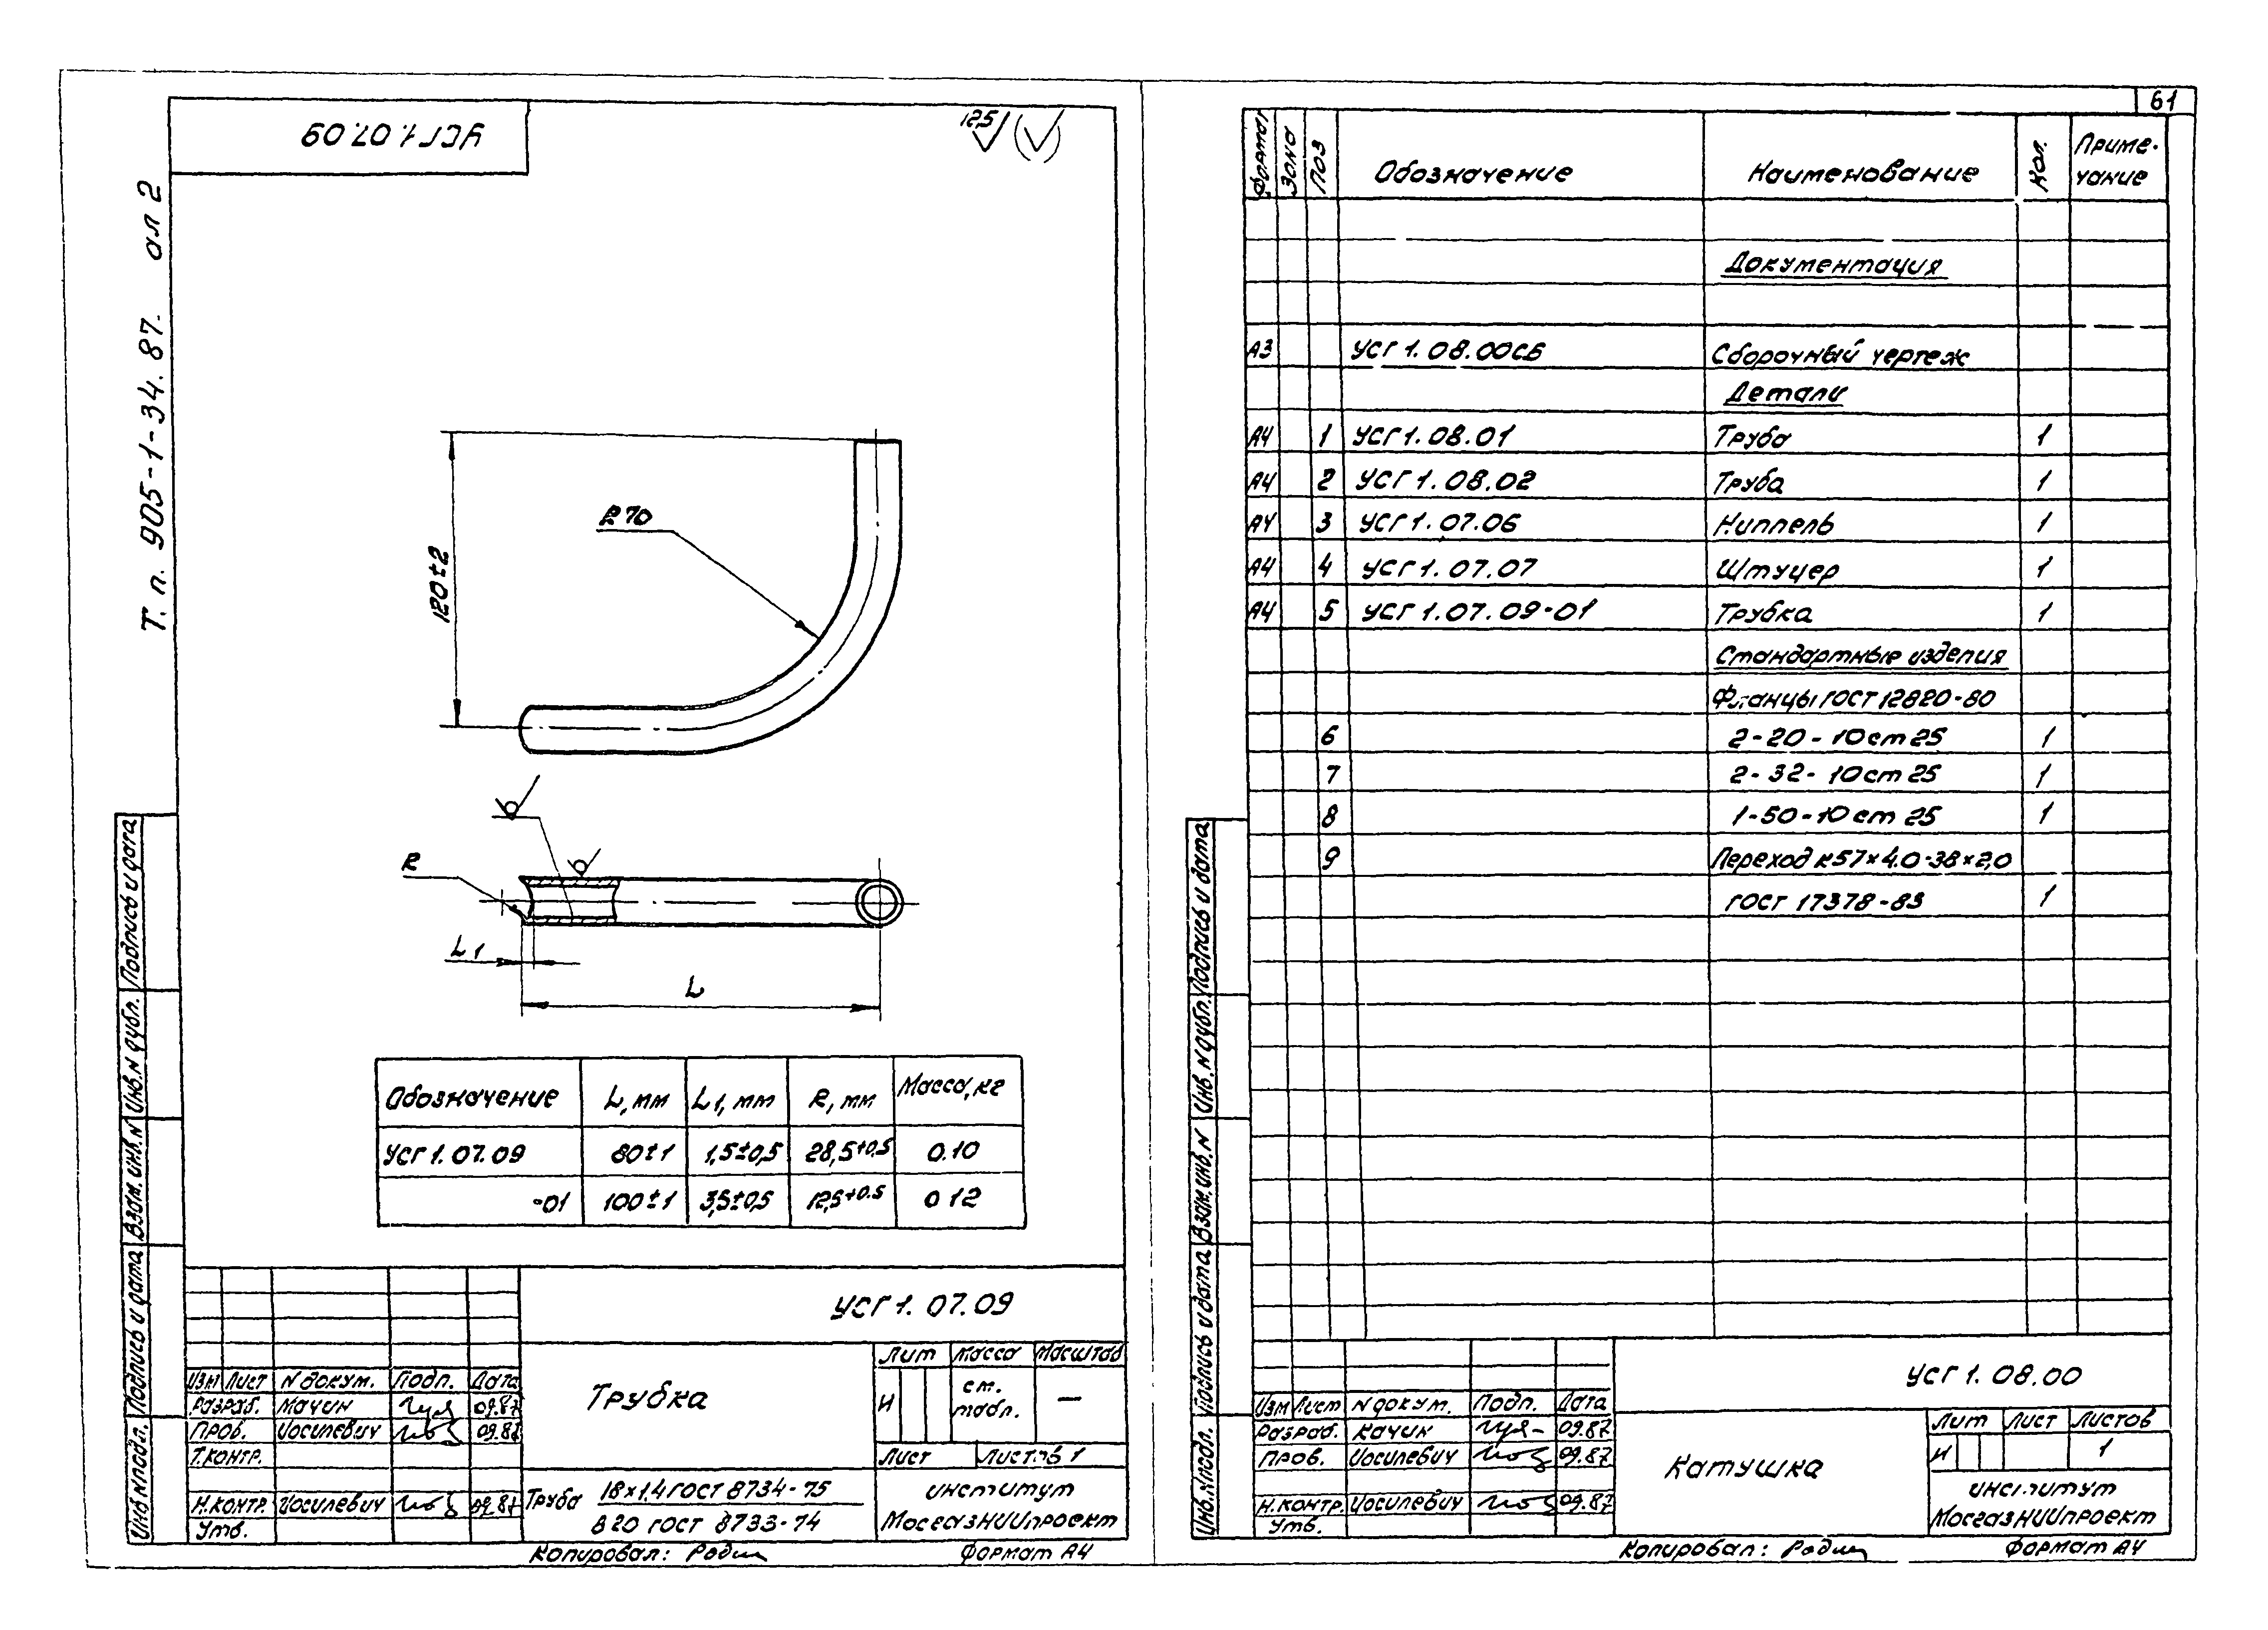 УСГ 1.07.09
12,5
Т. п. 905-1-34.87. ал 2
120±2
R 70
R
L1
L
Обозначение L, мм L1, мм R, мм Масса, кг
УСГ 1.07.09 80±1 1,5±0,5 28,5+0,5 0.10
-01 100±1 3,5±0,5 12,5+0.5 0 12
УСГ 1.07.09
Изм Лист N докум. Подп. Дата
Разраб. 09.87
Пров. Иосилевич 09.87
Т.контр.
Н.контр. Иосилевич 09.87
Утв.
Трубка
Лит Масса Масштаб
И см. табл. —
Лист Листов 1
Труба 18×1,4 ГОСТ 8734-75
В 20 ГОСТ 8733-74
институт
МосгазНИИпроект
Копировал:
Формат А4
Инв. N подл. Подпись и дата Взам. инв. N Инв. N дубл. Подпись и дата
61
Формат Зона Поз Обозначение Наименование Кол. Приме-
чание
Документация
А3 УСГ 1.08.00СБ Сборочный чертеж
Детали
А4 1 УСГ 1.08.01 Труба 1
А4 2 УСГ 1.08.02 Труба 1
А4 3 УСГ 1.07.06 Ниппель 1
А4 4 УСГ 1.07.07 Штуцер 1
А4 5 УСГ 1.07.09-01 Трубка 1
Стандартные изделия
Фланцы ГОСТ 12820-80
6 2-20-10 ст 25 1
7 2-32-10 ст 25 1
8 1-50-10 ст 25 1
9 Переход К57×4,0-38×2,0
ГОСТ 17378-83 1
УСГ 1.08.00
Изм Лист N докум. Подп. Дата
Разраб. Качик 09.87
Пров. Иосилевич 09.87
Н.контр. Иосилевич 09.87
Утв.
Катушка
Лит Лист Листов
И 1
институт
МосгазНИИпроект
Копировал:
Формат А4
Инв. N подл. Подпись и дата Взам. инв. N Инв. N дубл. Подпись и дата